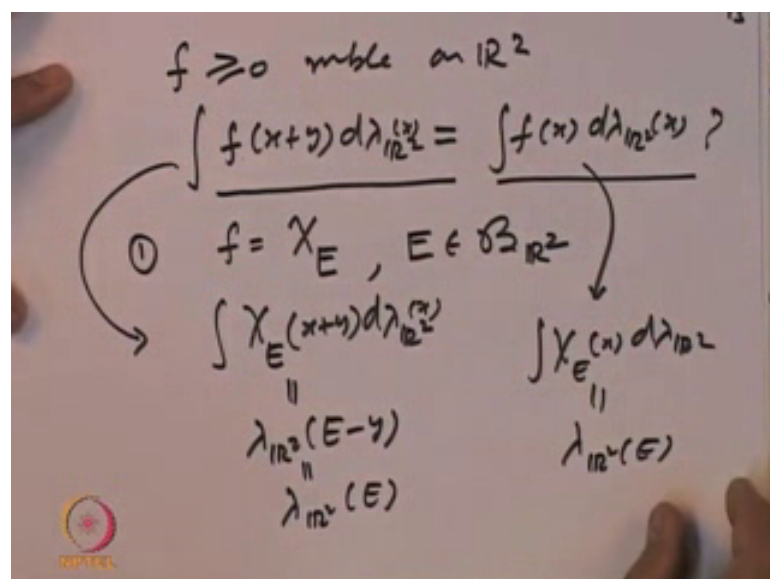 f ≥ 0 mble on ℝ²
∫ f(x+y) dλ_ℝ²(x) = ∫ f(x) dλ_ℝ²(x) ?
① f = χ_E , E ∈ 𝓑_ℝ²
∫ χ_E(x+y) dλ_ℝ²(x) ∫ χ_E(x) dλ_ℝ²
|| ||
λ_ℝ²(E-y) λ_ℝ²(E)
||
λ_ℝ²(E)
NPTEL